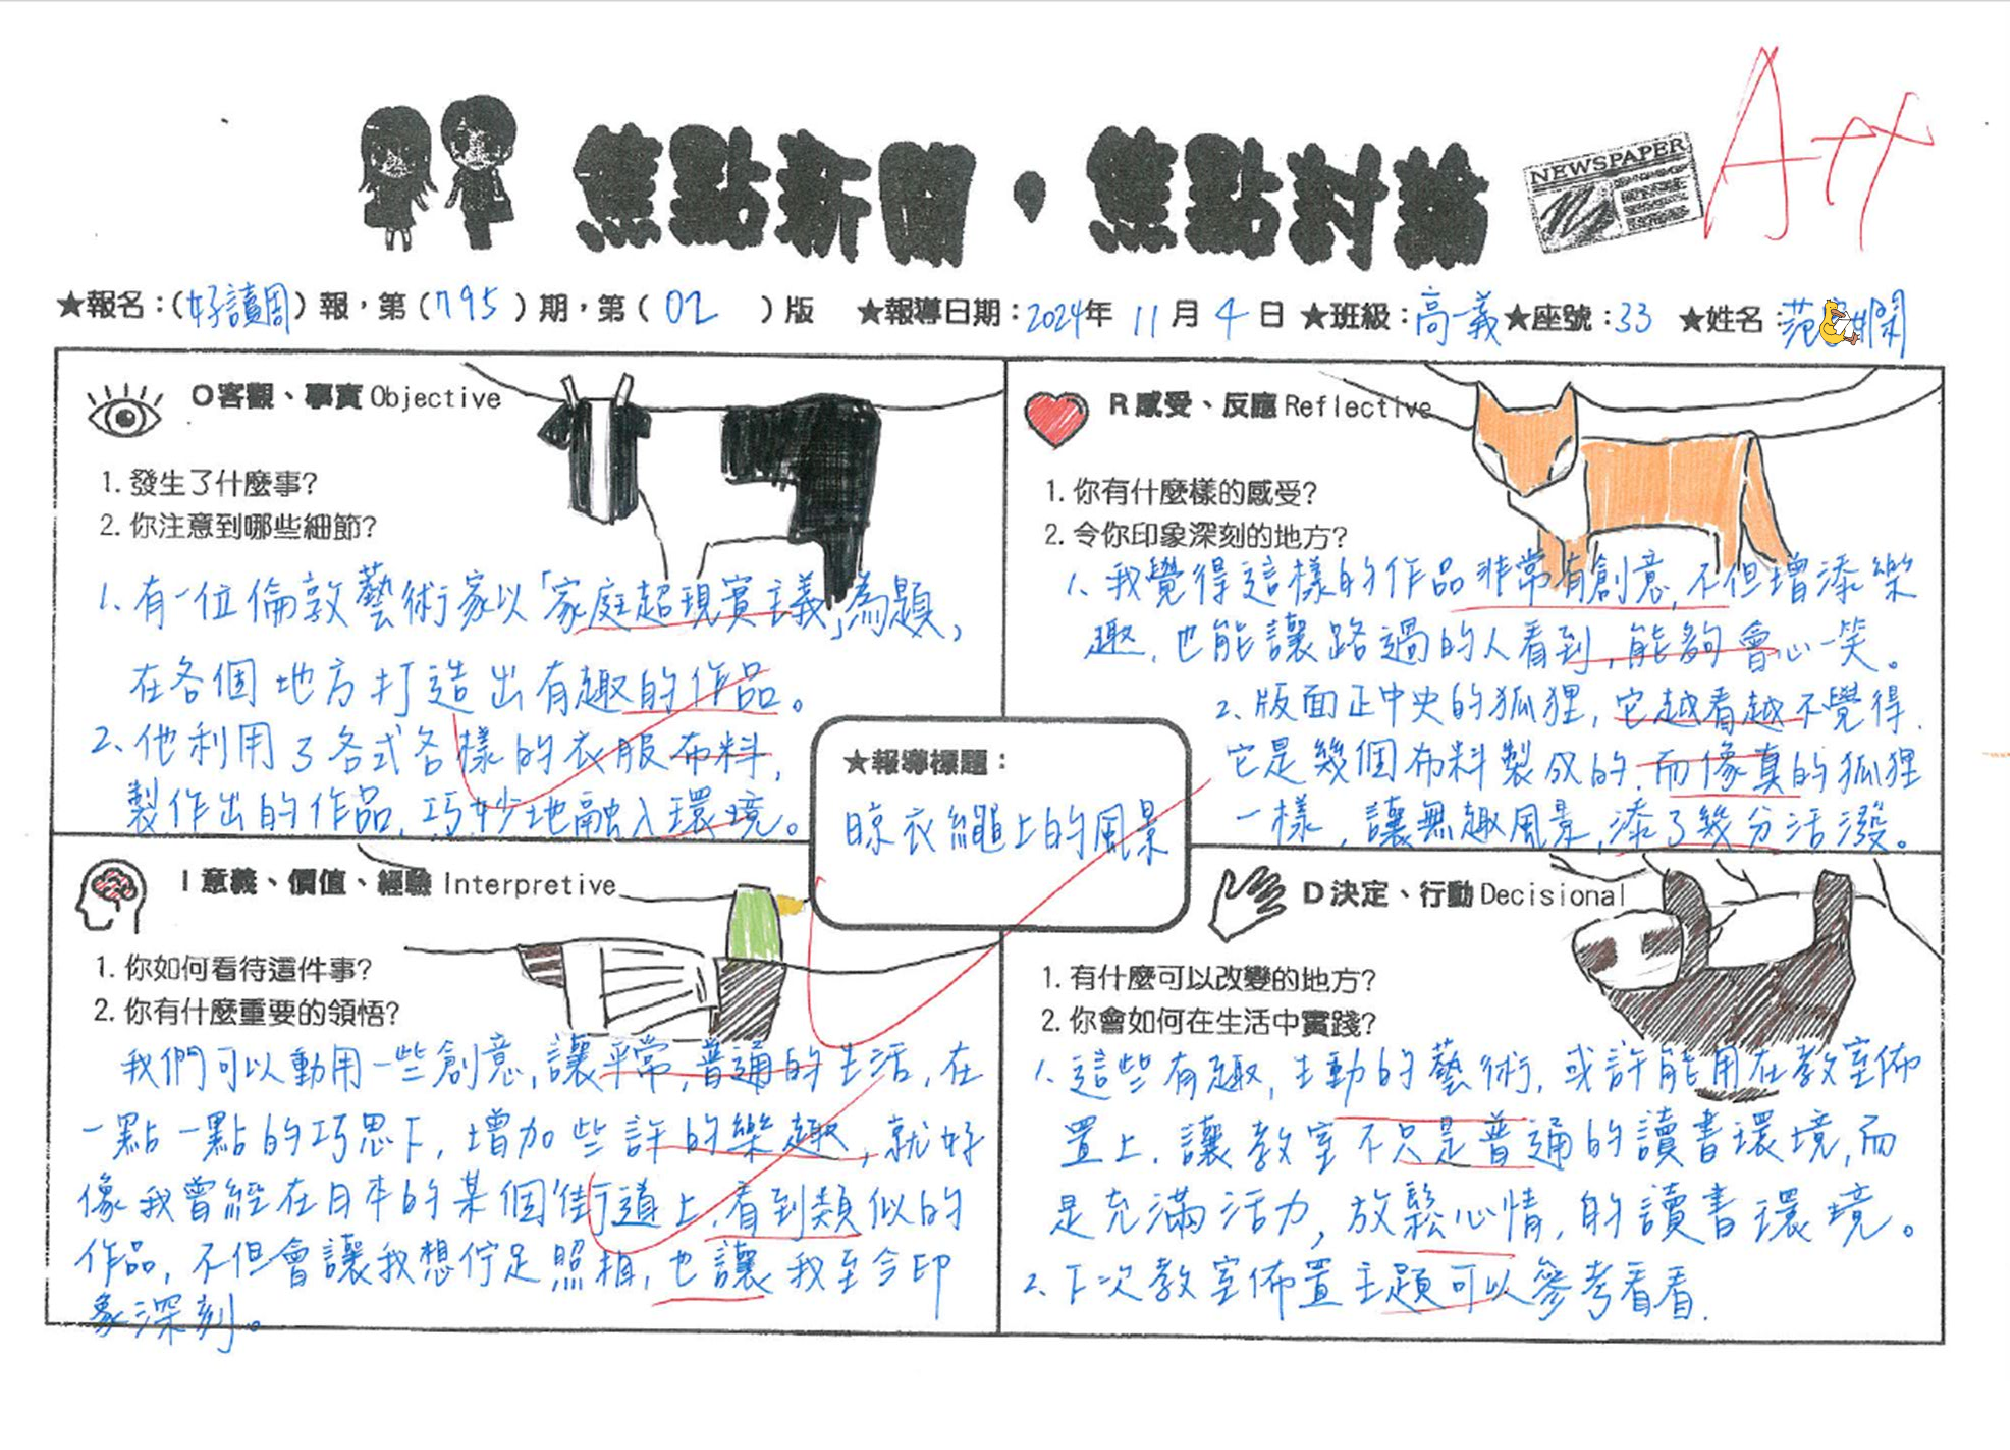 焦點新聞・焦點討論
NEWSPAPER
A++
★報名：(好讀周)報，第(795)期，第(02)版 ★報導日期：2024年11月4日 ★班級：高一義 ★座號：33 ★姓名：范
O客觀、事實 Objective
1. 發生了什麼事?
2. 你注意到哪些細節?
1. 有一位倫敦藝術家以「家庭超現實主義」為題，
在各個地方打造出有趣的作品。
2. 他利用了各式各樣的衣服布料，
製作出的作品，巧妙地融入環境。
R感受、反應 Reflective
1. 你有什麼樣的感受?
2. 令你印象深刻的地方?
1. 我覺得這樣的作品非常有創意，不但增添樂
趣，也能讓路過的人看到，能夠會心一笑。
2. 版面正中央的狐狸，它越看越不覺得，
它是幾個布料製成的，而像真的狐狸
一樣，讓無趣風景，添了幾分活潑。
★報導標題：
晾衣繩上的風景
I 意義、價值、經驗 Interpretive
1. 你如何看待這件事?
2. 你有什麼重要的領悟?
我們可以動用一些創意，讓平常，普通的生活，在
一點一點的巧思下，增加些許的樂趣，就好
像我曾經在日本的某個街道上，看到類似的
作品，不但會讓我想佇足照相，也讓我至今印
象深刻。
D決定、行動 Decisional
1. 有什麼可以改變的地方?
2. 你會如何在生活中實踐?
1. 這些有趣，生動的藝術，或許能用在教室佈
置上，讓教室不只是普通的讀書環境，而
是充滿活力，放鬆心情，的讀書環境。
2. 下次教室佈置主題可以參考看看.